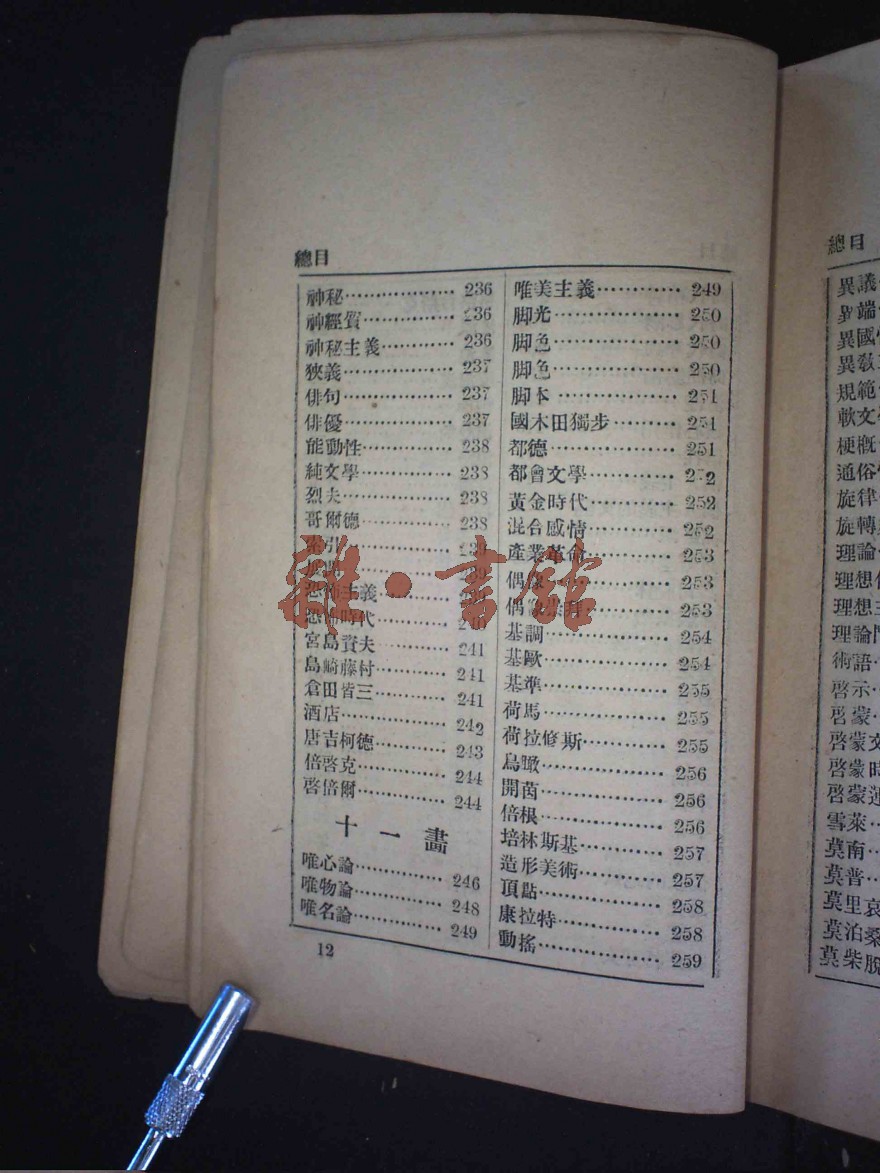 總目
神秘 236
神經質 236
神秘主義 236
狹義 237
俳句 237
俳優 237
能動性 238
純文學 238
烈夫 238
哥爾德 238
索引 239
239
恐怖主義
恐怖時代 240
宮島資夫 241
島崎藤村 241
倉田皆三 241
酒店 242
唐吉柯德 243
倍啓克 244
啓倍爾 244
十一畫
唯心論 246
唯物論 248
唯名論 249
唯美主義 249
脚光 250
脚色 250
脚色 250
脚本 251
國木田獨步 251
都德 251
都會文學 252
黃金時代 252
混合感情 252
產業革命 253
偶像 253
偶像崇拜 253
基調 254
基歐 254
基準 255
荷馬 255
荷拉修斯 255
鳥瞰 256
開茵 256
倍根 256
培林斯基 257
造形美術 257
頂點 258
康拉特 258
動搖 259
12
雜·書館
總目
異議
異端
異國
異教
規範
軟文
梗概
通俗
旋律
旋轉
理論
理想
理想
理論
術語
啓示
啓蒙
啓蒙文
啓蒙時
啓蒙運
雪萊
莫南
莫普
莫里哀
莫泊桑
莫柴